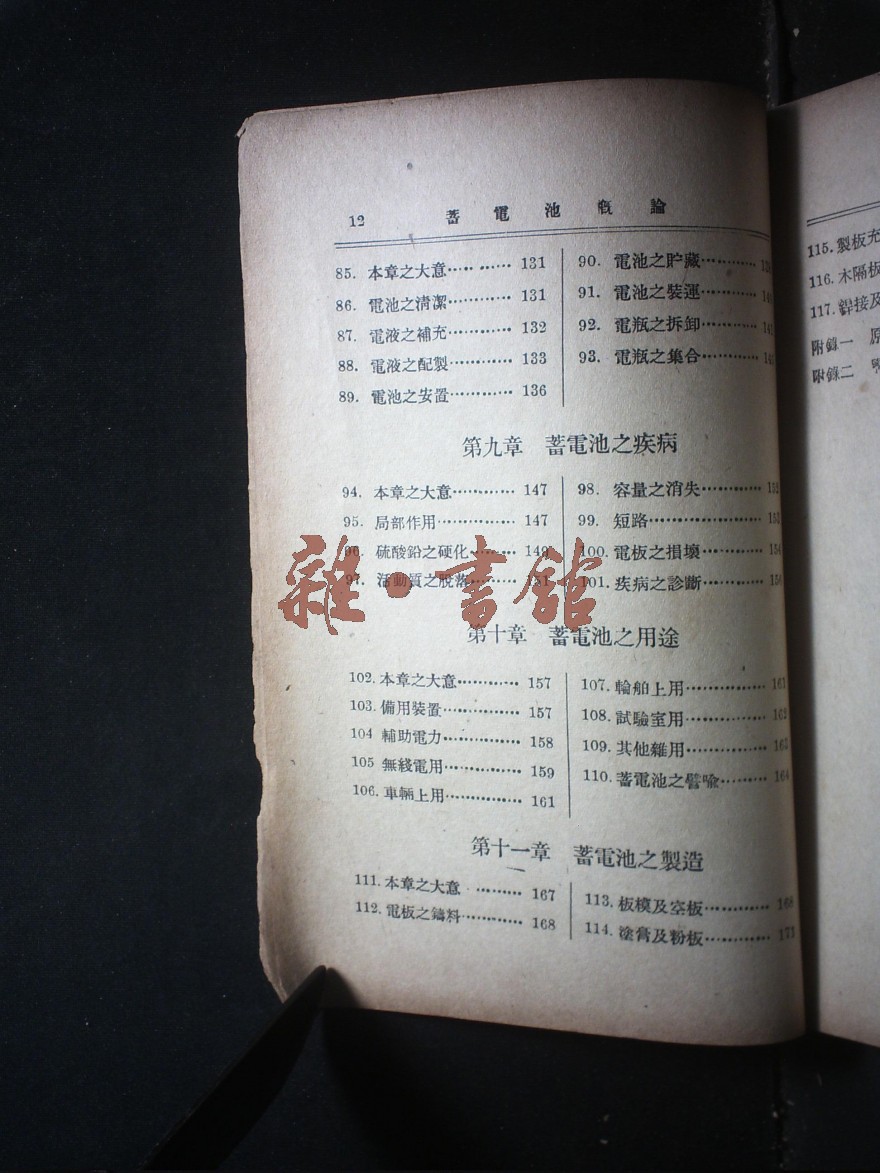 12 蓄電池概論
85. 本章之大意………… 131
86. 電池之淸潔………… 131
87. 電液之補充………… 132
88. 電液之配製………… 133
89. 電池之安置………… 136
90. 電池之貯藏…………
91. 電池之裝運…………
92. 電瓶之拆卸…………
93. 電瓶之集合…………
第九章 蓄電池之疾病
94. 本章之大意………… 147
95. 局部作用………… 147
96. 硫酸鉛之硬化……… 149
97. 活動質之脫落……… 151
98. 容量之消失………… 152
99. 短路………………… 153
100. 電板之損壞………… 154
101. 疾病之診斷…………
雜·書館
第十章 蓄電池之用途
102. 本章之大意………… 157
103. 備用裝置………… 157
104 輔助電力………… 158
105 無綫電用………… 159
106. 車輛上用………… 161
107. 輪舶上用………… 161
108. 試驗室用………… 162
109. 其他雜用………… 163
110. 蓄電池之譬喩……… 164
第十一章 蓄電池之製造
111. 本章之大意 ……… 167
112. 電板之鑄料………… 168
113. 板模及空板………… 168
114. 塗膏及粉板………… 173
115. 製板充
116. 木隔板
117. 銲接及
附錄一 原
附錄二